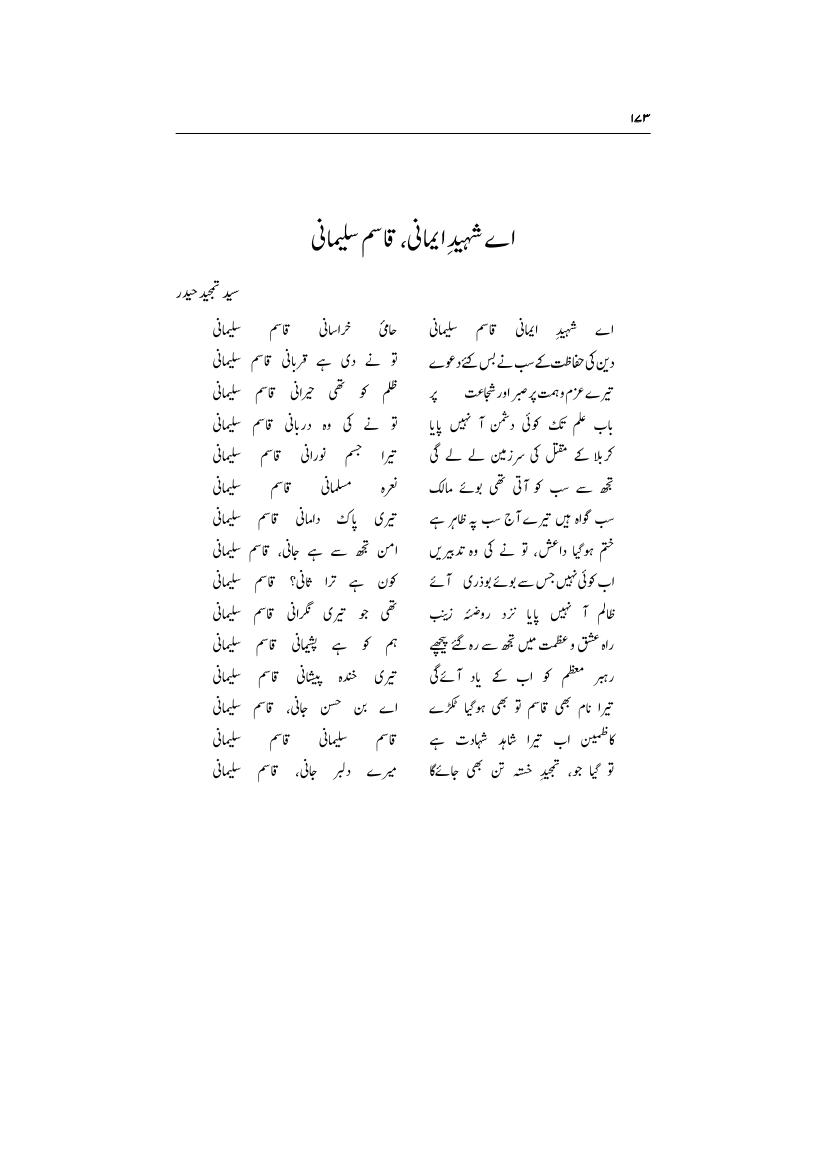 ۱۷۳
اے شہیدِ ایمانی، قاسم سلیمانی
سید تمجید حیدر
اے شہیدِ ایمانی قاسم سلیمانی حامیٔ خراسانی قاسم سلیمانی
دین کی حفاظت کے سب نے بس کئے دعوے تو نے دی ہے قربانی قاسم سلیمانی
تیرے عزم و ہمت پر صبر اور شجاعت پر ظلم کو تھی حیرانی قاسم سلیمانی
باب علم تک کوئی دشمن آ نہیں پایا تو نے کی وہ دربانی قاسم سلیمانی
کربلا کے مقتل کی سرزمین لے لے گی تیرا جسم نورانی قاسم سلیمانی
تجھ سے سب کو آتی تھی بوئے مالک نعرہ مسلمانی قاسم سلیمانی
سب گواہ ہیں تیرے آج سب پہ ظاہر ہے تیری پاک دامانی قاسم سلیمانی
ختم ہوگیا داعش، تو نے کی وہ تدبیریں امن تجھ سے ہے جانی، قاسم سلیمانی
اب کوئی نہیں جس سے بوئے بوذری آئے کون ہے ترا ثانی؟ قاسم سلیمانی
ظالم آ نہیں پایا نزد روضئہ زینب تھی جو تیری نگرانی قاسم سلیمانی
راہ عشق و عظمت میں تجھ سے رہ گئے پیچھے ہم کو ہے پشیمانی قاسم سلیمانی
رہبر معظم کو اب کے یاد آئے گی تیری خندہ پیشانی قاسم سلیمانی
تیرا نام بھی قاسم تو بھی ہوگیا ٹکڑے اے بن حسن جانی، قاسم سلیمانی
کاظمین اب تیرا شاہد شہادت ہے قاسم سلیمانی قاسم سلیمانی
تو گیا جو، تمجیدِ خستہ تن بھی جائے گا میرے دلبر جانی، قاسم سلیمانی